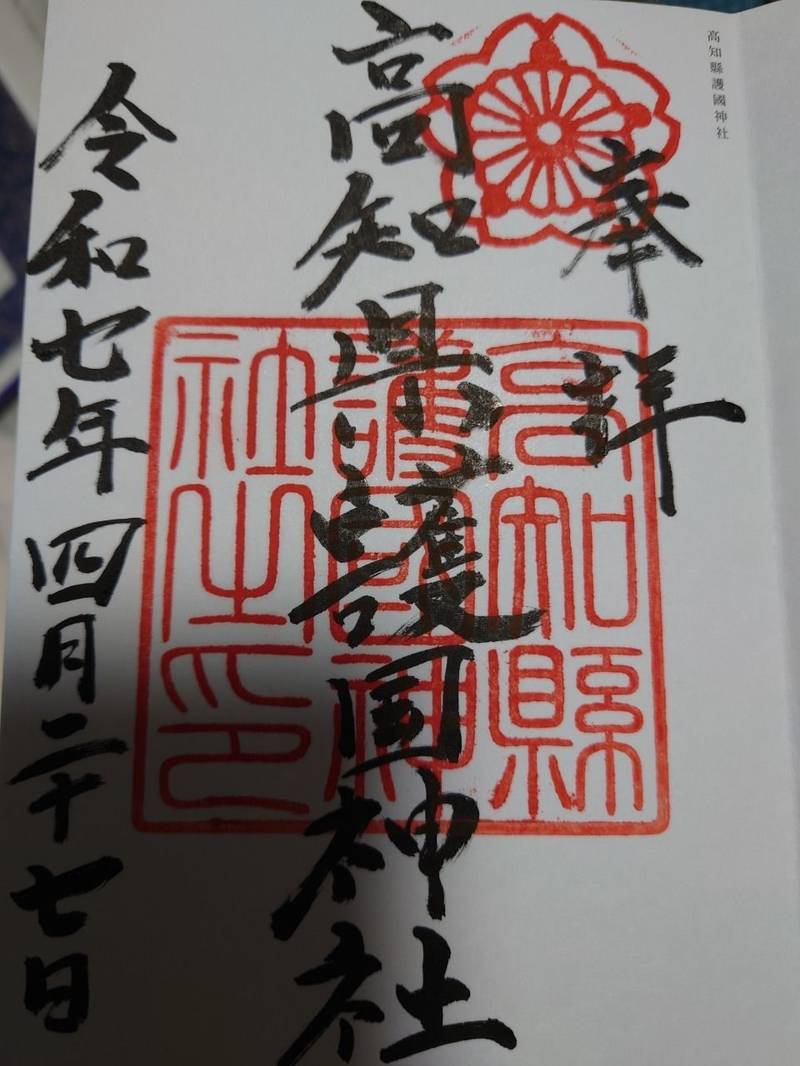 高知縣護國神社
奉拝
高知県護国神社
令和七年四月二十七日
高知縣
護國神
社之印